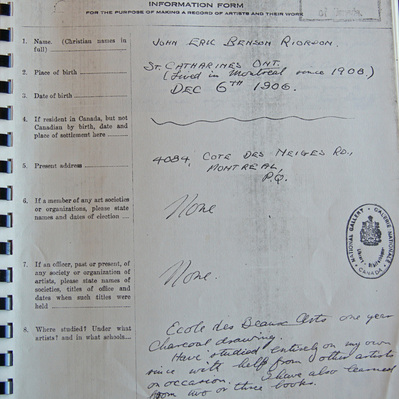 INFORMATION FORM
FOR THE PURPOSE OF MAKING A RECORD OF ARTISTS AND THEIR WORK
of Canada.
1. Name. (Christian names in full)
JOHN ERIC BENSON RIORDON.
2. Place of birth
ST. CATHARINES ONT.
(Lived in Montreal since 1908.)
3. Date of birth
DEC 6TH 1906.
4. If resident in Canada, but not
Canadian by birth, date and
place of settlement here
5. Present address
4084, COTE DES NEIGES RD.,
MONTREAL,
P.Q.
6. If a member of any art societies
or organizations, please state
names and dates of election
None
7. If an officer, past or present, of
any society or organization of
artists, please state names of
societies, titles of office and
dates when such titles were
held
None.
NATIONAL GALLERY · GALERIE NATIONALE
CANADA
8. Where studied? Under what
artists? and in what schools
Ecole des Beaux Arts one year
charcoal drawing.
Have studied entirely on my own
since with help from other artists
on occasion. I have also learned
from two or three books.